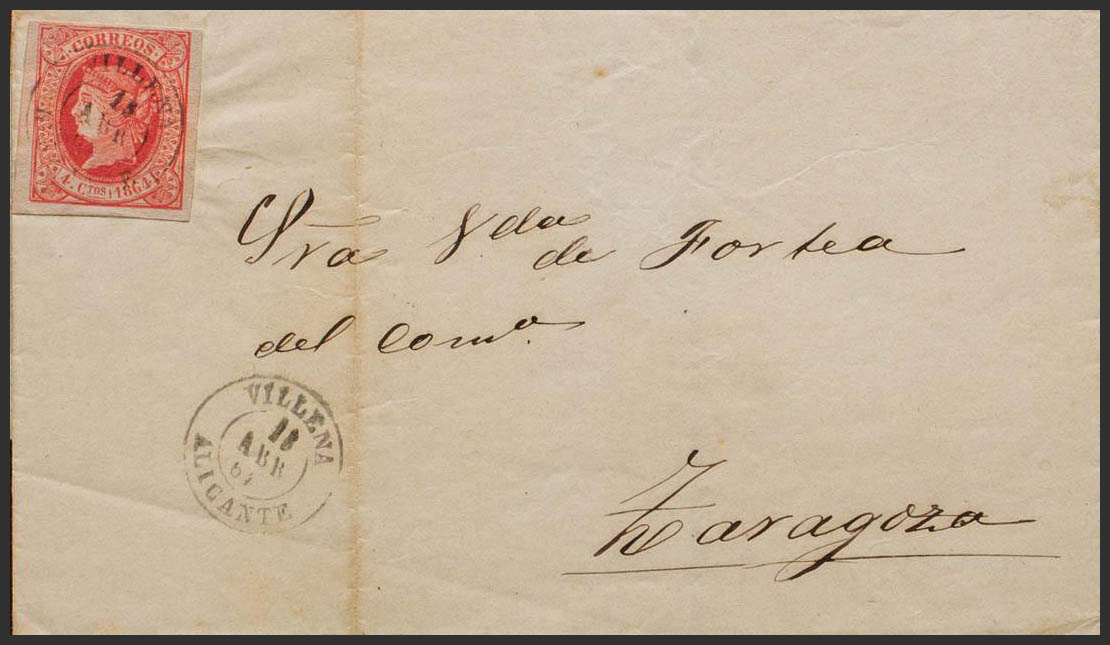 CORREOS
VILLENA
18
ABR
4 CTOS 1864
Sra Vda de Fortea
del Como.
VILLENA
18
ABR
64
ALICANTE
Zaragoza